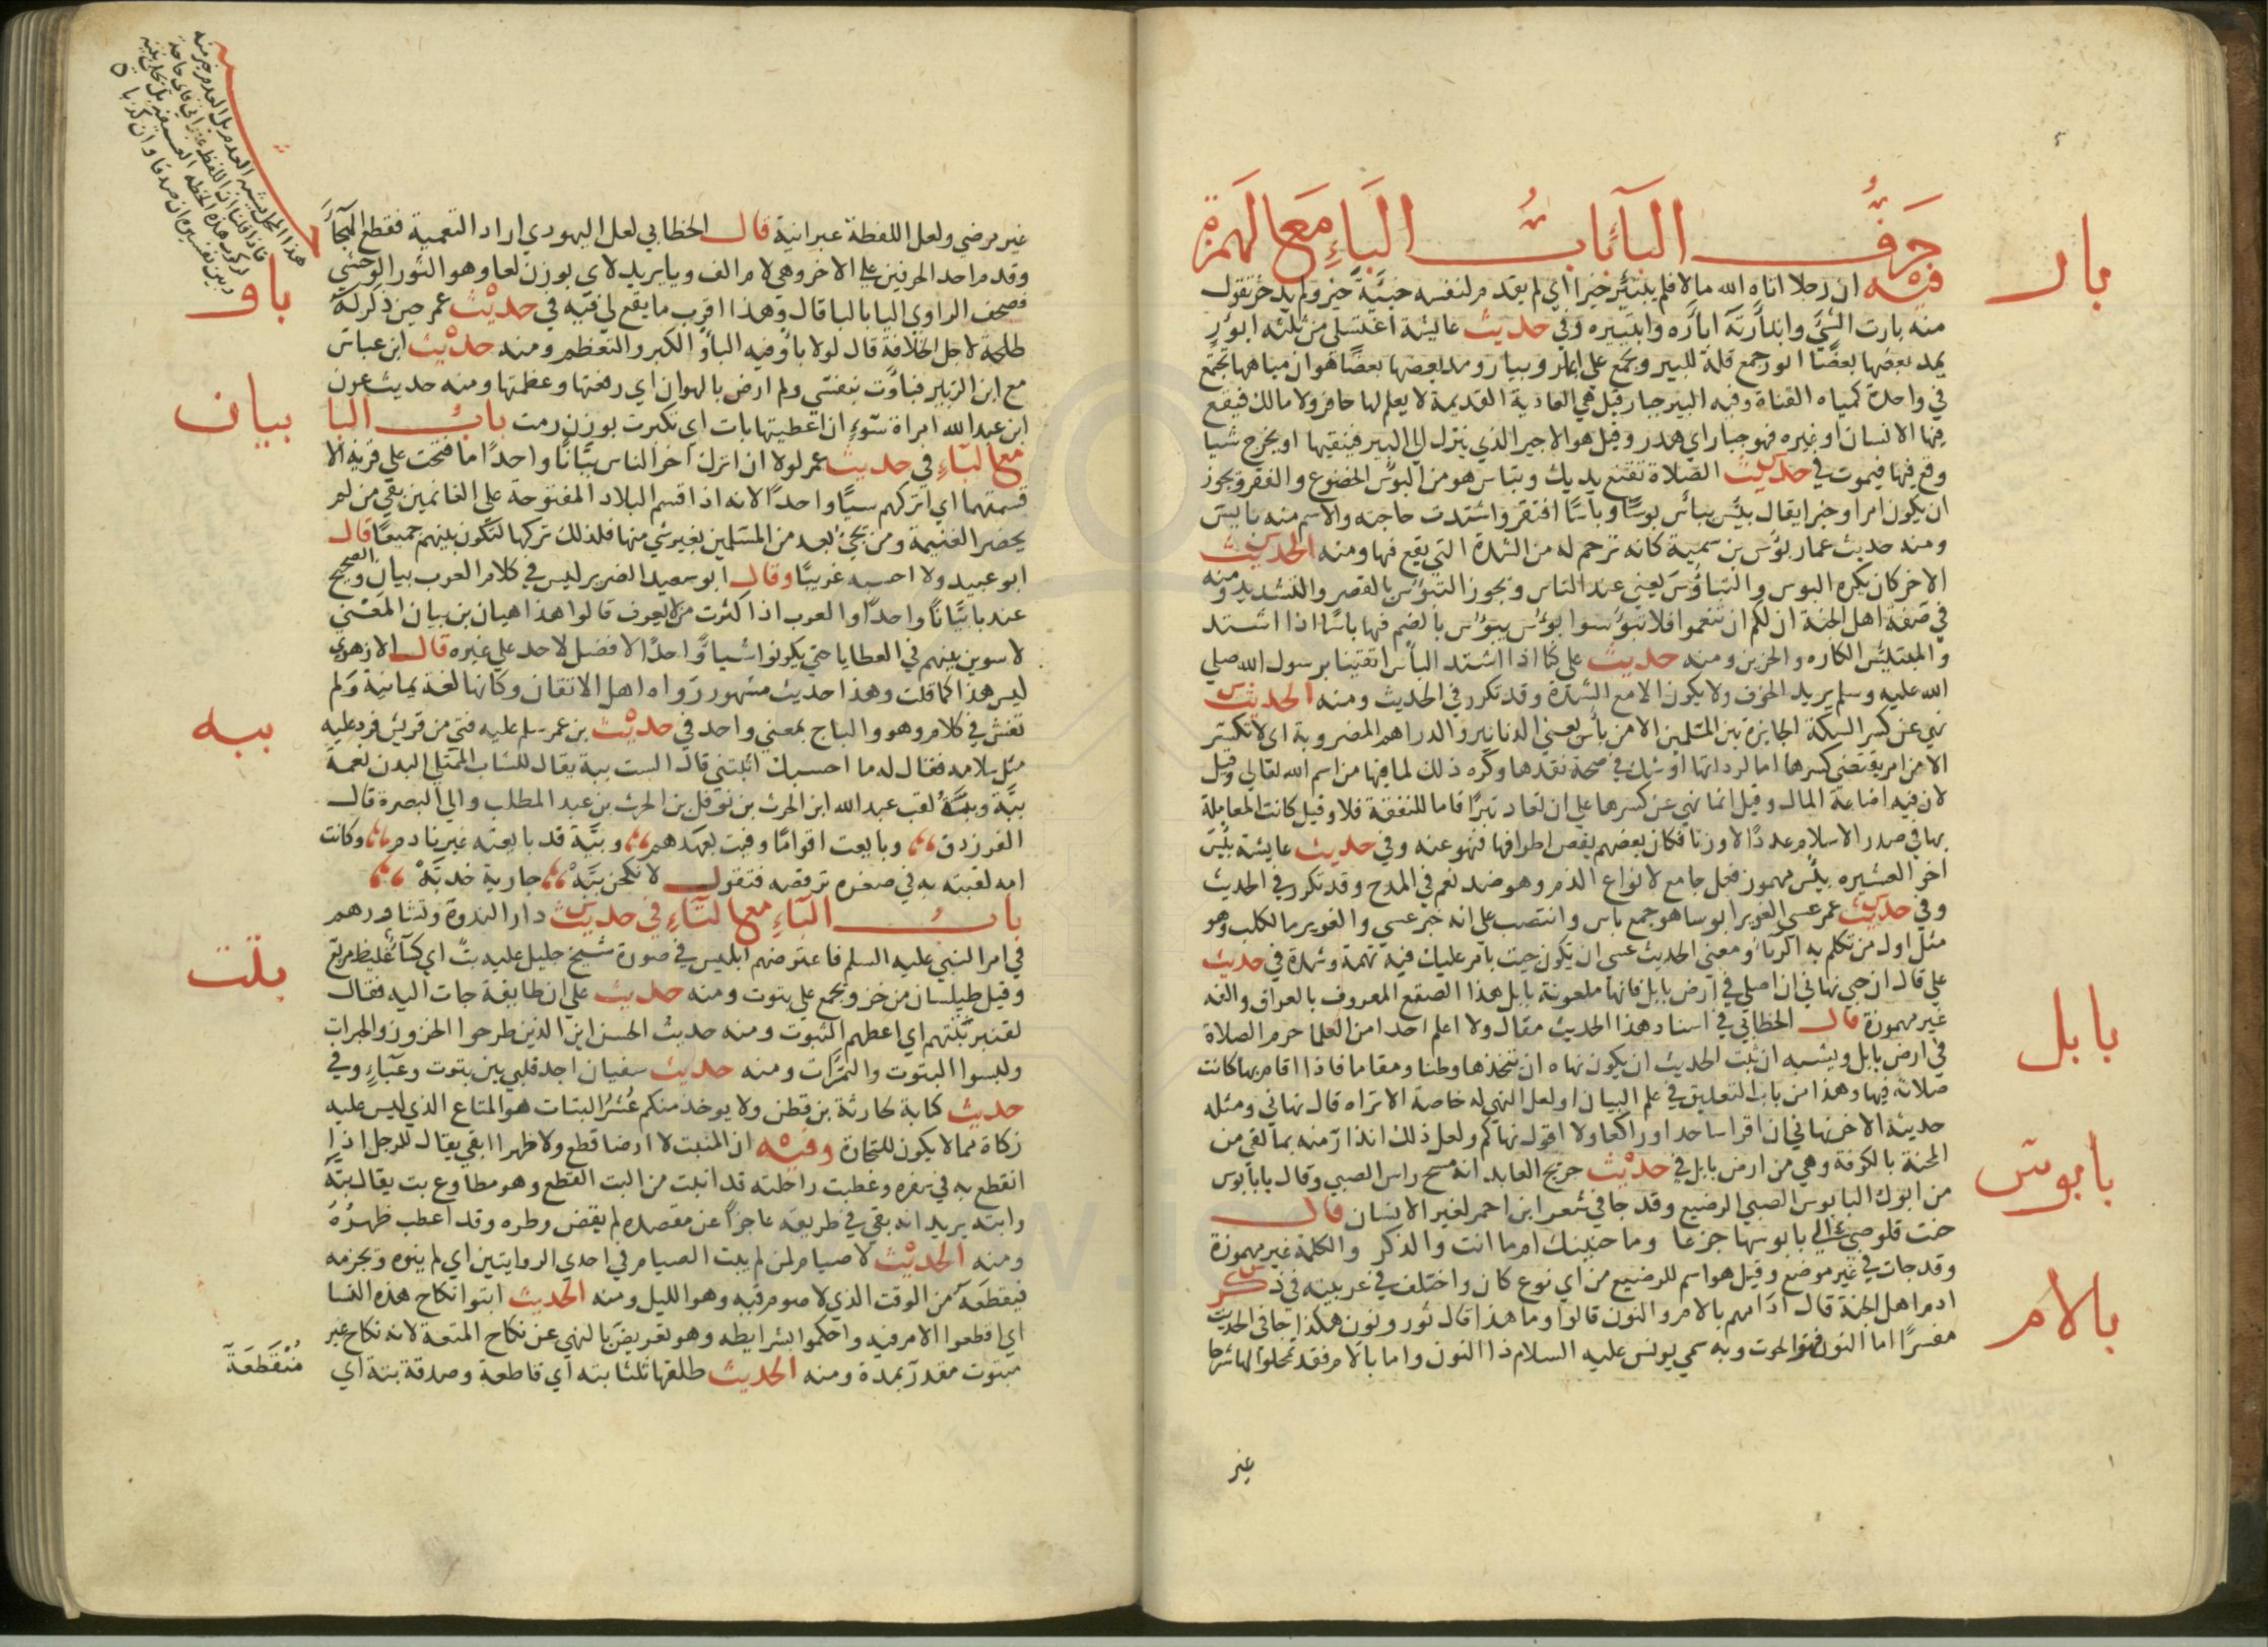 حرف البآء باب الباء مع الهمزة
بار
فيه ان رجلا اتاه الله مالا فلم يبتئر خيرا اي لم يقدم لنفسه خبيئة خير ولم يدخر تقول
منه بارت الشئ وابتأرته أبأره وابتئيره وفي حديث عايشة اغتسلي من ثلثه ابؤر
يمد بعضها بعضا ابور جمع قلة للبير ويجمع على ابار وبيار ومد بعضها بعضا هو ان مياهها تجتمع
في واحدة كمياه القناة وفيه البير جبار قيل هي العادية القديمة لا يعلم لها حافر ولا مالك فيقع
فيها الانسان او غيره فهو جبار اي هدر وقيل هو الاجير الذي ينزل الي البير فينقيها او يخرج شيا
وقع فيها فيموت في حديث الصلاة تقنع يديك وتباس هو من البوس الخضوع والفقر ويجوز
ان يكون امرا وخبرا يقال بيس يبأس بوسا وباسا افتقر واشتدت حاجته والاسم منه بايس
ومنه حديث عمار بؤس بن سمية كانه ترحم له من الشدة التي يقع فيها ومنه الحديث
الاخر كان يكره البوس والتباوس يعني عند الناس ويجوز التبوس بالقصر والتشديد ومنه
في صفة اهل الجنة ان لكم ان تنعموا فلا تبؤسوا بوس يبؤس بالضم فيها باسا اذا اشتد
والمبتئس الكاره والحزين ومنه حديث علي كنا اذا اشتد البأس اتقينا برسول الله صلي
الله عليه وسلم يريد الخوف ولا يكون الا مع الشدة وقد تكرر في الحديث ومنه الحديث
نهي عن كسر السكة الجايزة بين المسلمين الا من بأس يعني الدنانير والدراهم المضروبة اي لا تكسر
الا من امر يقتضي كسرها اما لرداتها او شك في صحة نقدها وكره ذلك لما فيها من اسم الله تعالي وقيل
لان فيه اضاعة المال وقيل انما نهي عن كسرها علي ان تعاد تبرا فاما للنفقة فلا وقيل كانت المعاملة
بها في صدر الاسلام عددا لا وزنا فكان بعضهم يقص اطرافها فنهو عنه وفي حديث عايشة بئس
اخو العشيره بئس مهموز فعل جامع لانواع الذم وهو ضد نعم في المدح وقد تكرر في الحديث
وفي حديث عمر عسي الغوير ابوسا هو جمع باس وانتصب علي انه خبر عسي والغوير ما لكلب وهو
مثل اول من تكلم به الزبا ومعني الحديث عسي ان يكون جيت بامر عليك فيه تهمة وشدة في حديث
بابل
علي قال ان حبي نهاني ان اصلي في ارض بابل فانها ملعونة بابل هذا الصقع المعروف بالعراق والفه
غير مهموزة قال الخطابي في اسناد هذا الحديث مقال ولا اعلم احدا من العلما حرم الصلاة
في ارض بابل ويشبه ان ثبت الحديث ان يكون نهاه ان تتخذها وطنا ومقاما فاذا اقام بها كانت
صلاته فيها وهذا من باب التعليق في علم البيان او لعل النهي له خاصة الا تراه قال نهاني ومثله
حديثه الاخر نهاني ان اقرا ساجدا او راكعا ولا اقول نهاكم ولعل ذلك انذار منه بما لقي من
بابوس
المحنة بالكوفة وهي من ارض بابل في حديث جريج العابد انه مسح راس الصبي وقال يا بابوس
من ابوك البابوس الصبي الرضيع وقد جا في شعر ابن احمر لغير الانسان قال
حنت قلوصي الي بابوسها جزعا وما حنينك ام ما انت والذكر والكلمة غير مهموزة
وقد جات في غير موضع وقيل هو اسم للرضيع من اي نوع كان واختلف في عربيته في ذكر
بالام
ادم اهل الجنة قال ادامهم بالام والنون قالوا وما هذا قال ثور ونون هكذا جا في الحديث
مفسرا اما النون فهو الحوت وبه سمي يونس عليه السلام ذا النون واما بالام فقد تمحلوا لها شرحا
غير
غير مرضي ولعل اللفظة عبرانية قال الخطابي لعل اليهودي اراد التعمية فقطع الهجآ
وقدم احد الحرفين علي الاخر وهي لام الف ويا يريد لاي بوزن لعا وهو الثور الوحشي
باو
فصحف الراوي اليا بالبا قال وهذا اقرب ما يقع لي فيه في حديث عمر حين ذكر له
طلحة لاجل الخلافة قال لولا باو فيه البأو الكبر والتعظم ومنه حديث ابن عباس
مع ابن الزبير فباوت بنفسي ولم ارض بالهوان اي رفعتها وعظمتها ومنه حديث عون
بيان
ابن عبد الله امراة سوء ان اعطيتها بات اي تكبرت بوزن رمت باب البا
مع البآء في حديث عمر لولا ان اترك اخر الناس ببانا واحدا ما فتحت علي قرية الا
قسمتها اي اتركهم شيا واحدا لانه اذا قسم البلاد المفتوحة علي الغانمين بقي من لم
يحضر الغنيمة ومن يجئ بعد من المسلمين بغير شي منها فلذلك تركها لتكون بينهم جميعا قال
ابو عبيد ولا احسبه عربيا وقال ابو سعيد الضرير ليس في كلام العرب ببان والصحيح
عندنا بيانا واحدا والعرب اذا ذكرت من لا يعرف قالوا هذا هيان بن بيان المعني
لاسوين بينهم في العطايا حتي يكونوا شيا واحدا لا فضل لاحد علي غيره قال الازهري
ليس هذا كما قلت وهذا حديث مشهور رواه اهل الاتقان وكانها لغة يمانية ولم
ببه
تفش في كلام وهو والباج بمعني واحد في حديث بن عمر سلم عليه فتي من قريش فرد عليه
مثل سلامه فقال له ما احسبك اثبتني قال الست ببة يقال للشاب الممتلي البدن نعمة
ببة وببة لقب عبد الله ابن الحرث بن نوفل بن الحرث بن عبد المطلب والي البصرة قال
الفرزدق وبايعت اقواما وفيت بعهدهم وببة قد بايعته غير نادم وكانت
امه لقبته به في صغره ترقصه فتقول لانكحن ببه جارية خدبه
باب البآء مع التآء في حديث دار الندوة وتشاورهم
بتت
في امر النبي عليه السلم فاعترضهم ابليس في صورة شيخ جليل عليه بت اي كسآ غليظ مربع
وقيل طيلسان من خز ويجمع علي بتوت ومنه حديث علي ان طايفة جات اليه فقال
لقنبر بتتهم اي اعطهم البتوت ومنه حديث الحسن اين الذين طرحوا الخزوز والحبرات
ولبسوا البتوت والنمرات ومنه حديث سفيان اجد قلبي بين بتوت وعبآء وفي
حديث كتابة لحارثة بن قطن ولا يوخذ منكم عشر البتات هو المتاع الذي ليس عليه
زكاة مما لا يكون للتجارة وفيه ان المنبت لا ارضا قطع ولا ظهرا ابقي يقال للرجل اذا
انقطع به في سفره وعطبت راحلته قد انبت من البت القطع وهو مطاوع بت يقال بته
وابته يريد انه بقي في طريقه عاجزا عن مقصده لم يقض وطره وقد اعطب ظهره
ومنه الحديث لا صيام لمن لم يبت الصيام في احدي الروايتين اي لم ينوه ويجزمه
فيقطعه من الوقت الذي لا صوم فيه وهو الليل ومنه الحديث ابتوا نكاح هذه النسا
اي اقطعوا الامر فيه واحكموا بشرايطه وهو تعريض بالنهي عن نكاح المتعة لانه نكاح غير
مبتوت مقدر بمدة ومنه الحديث طلقها ثلثا بته اي قاطعة وصدقة بتة اي
منقطعة